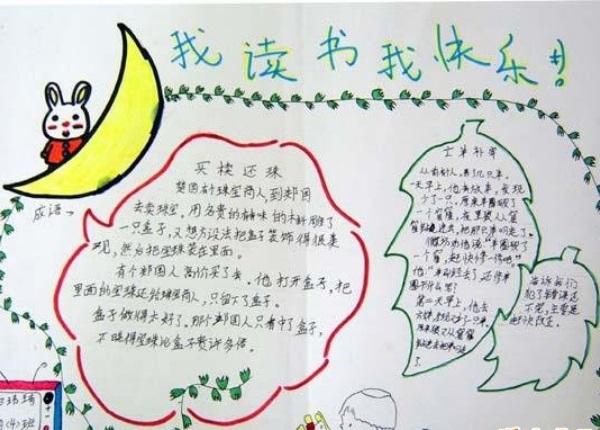 我读书我快乐!!
成语→
买椟还珠
楚国有个珠宝商人,到郑国
去卖珠宝,用名贵的有香味的木料雕了
一只盒子,又想方设法把盒子装饰得很美
观,然后把珠宝装在里面。
有个郑国人高价买了去。他打开盒子,把
里面的宝珠还给珠宝商人,只留下了盒子。
盒子做得太好了。那个郑国人只看中了盒子,
不晓得宝珠比盒子贵许多倍。
亡羊补牢
从前有个人,养了几只羊。
一天早上,他去放羊,发现
少了一只。原来羊圈破了
一个窟窿,夜里狼从窟
窿钻进去,把那只羊叼走了。
邻居劝他说:“羊圈破了
一个窟,赶快修一修吧。”
他:“羊已经丢了,还修羊
圈干什么呢?
第二天早上,他去
了。
告诉我们
犯了错误还
不晚,主要是
赶快改正。